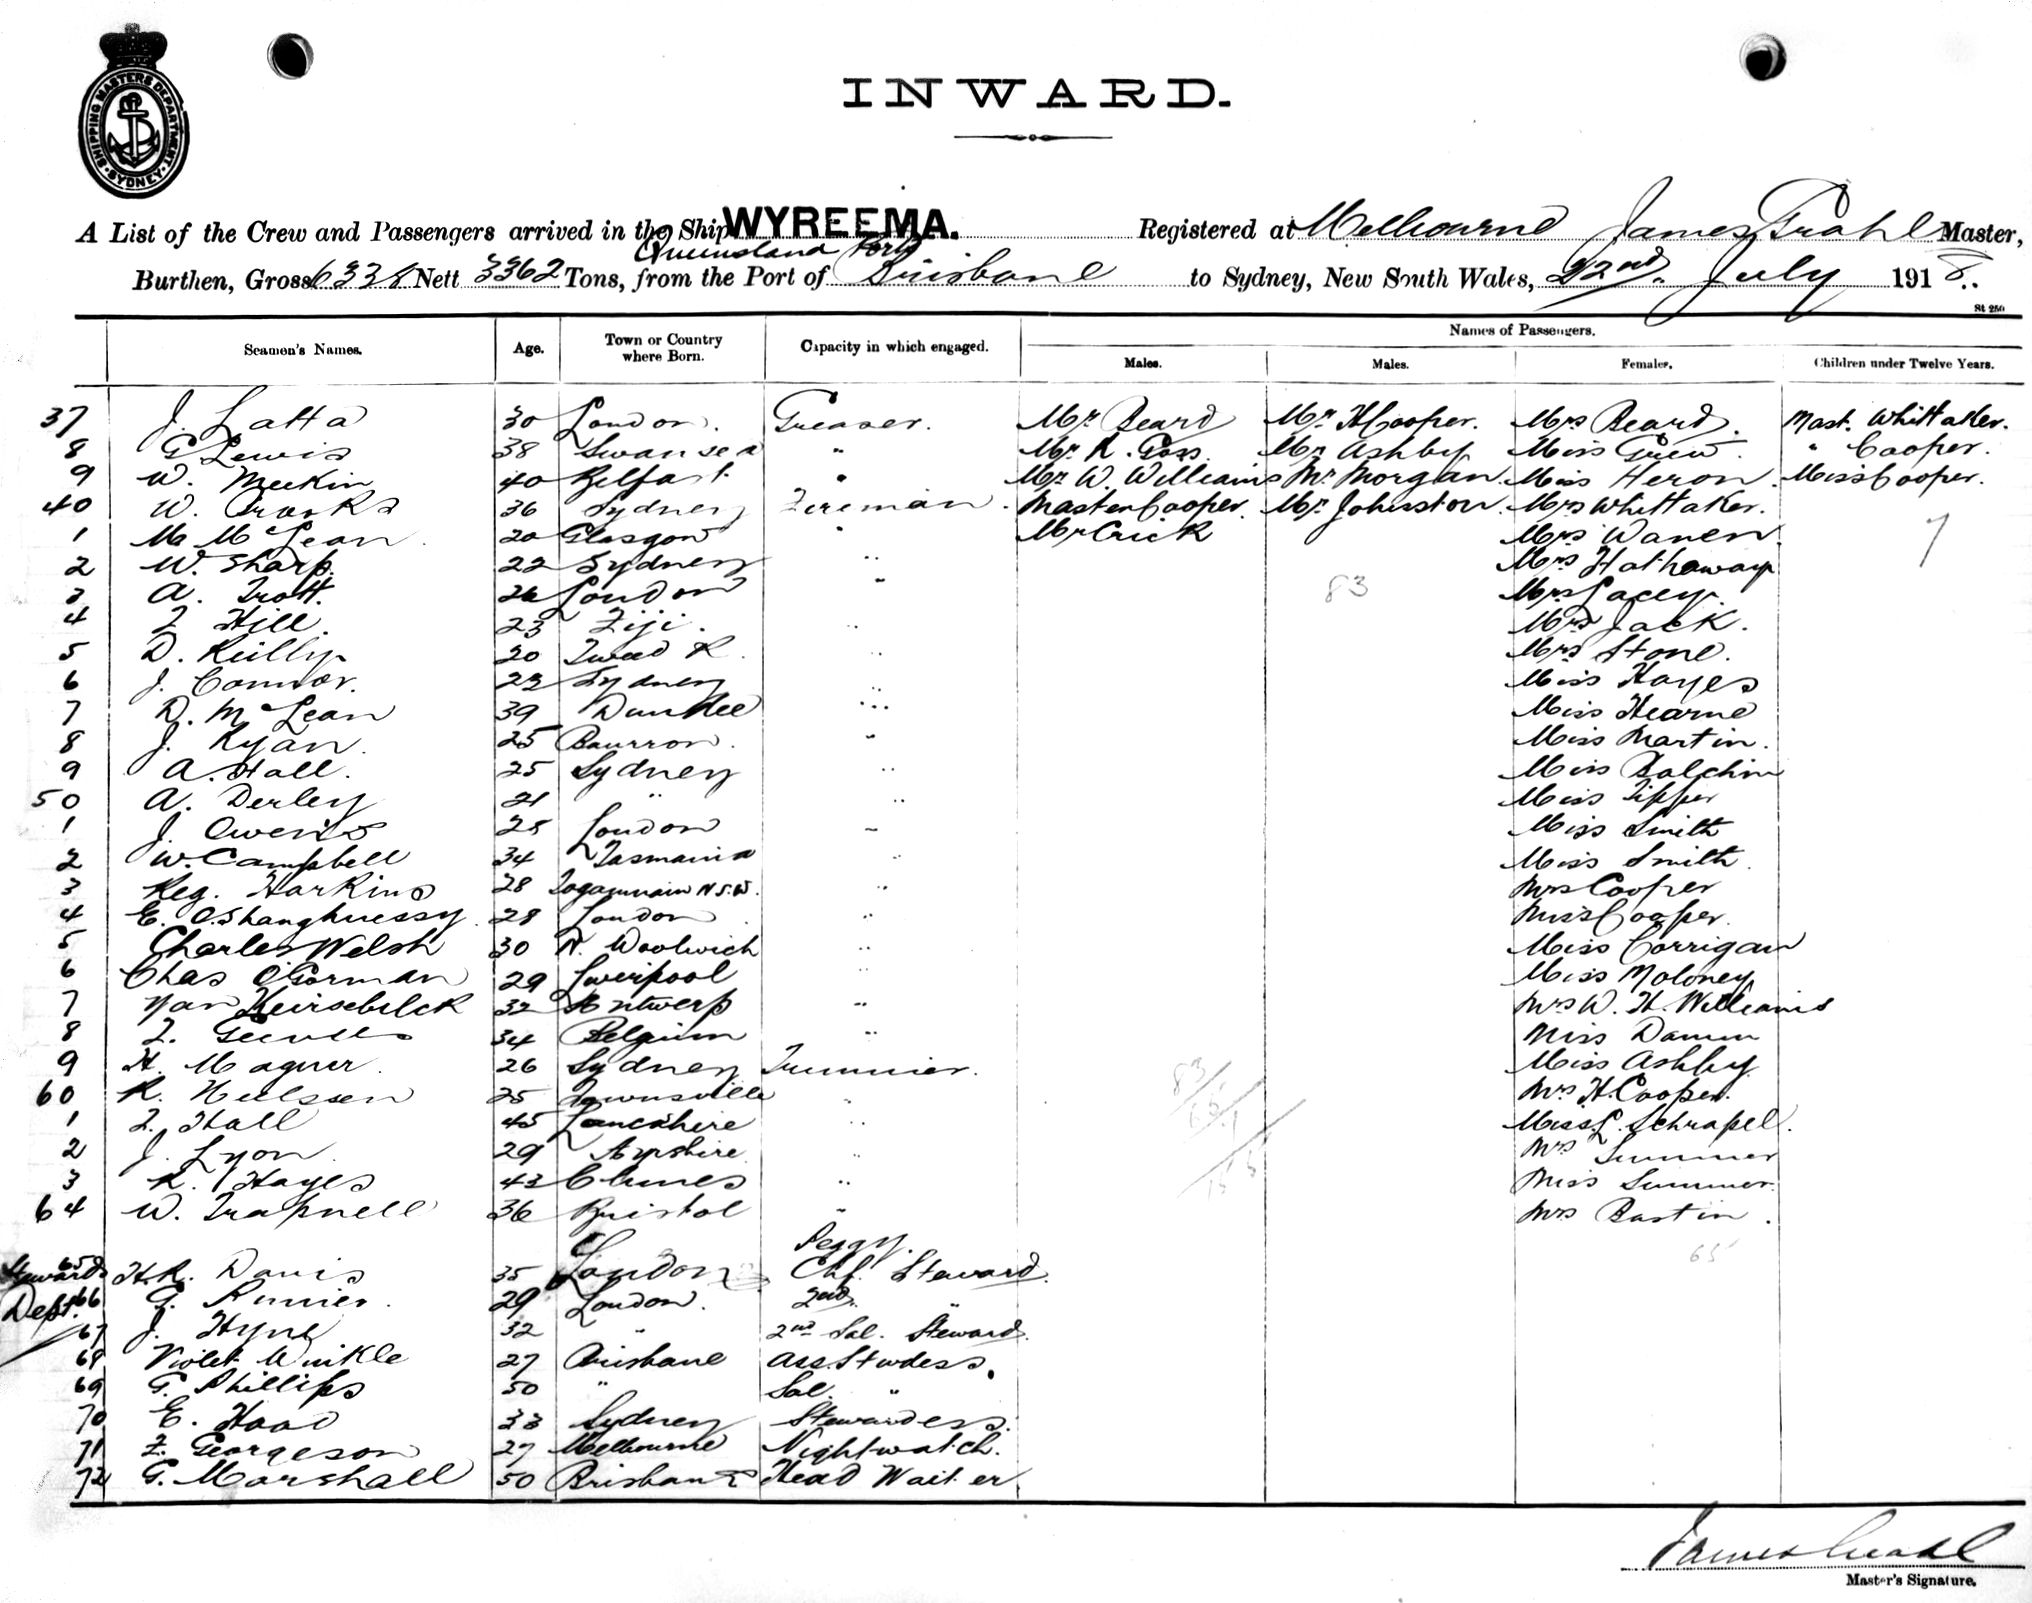 INWARD.
SHIPPING MASTERS DEPARTMENT. SYDNEY.
A List of the Crew and Passengers arrived in the Ship WYREEMA. Registered at Melbourne James Grahl Master,
Queensland Ports
Burthen, Gross 6338 Nett 3362 Tons, from the Port of Brisbane to Sydney, New South Wales, 22nd. July 1918.
St 250
Seamen's Names. Age. Town or Country where Born. Capacity in which engaged. Names of Passengers.
Males. Males. Females. Children under Twelve Years.
37 J. Latta 30 London. Greaser. Mr Beard Mr H Cooper. Mrs Beard. Mast. Whittaker.
8 G Lewis 38 Swansea " Mr R. Goss. Mr Ashby Miss " Cooper.
9 W. Meekin 40 Belfast " Mr W. Williams Mr Morgan. Miss Heron. Miss Cooper.
40 W. 36 Sydney Fireman. Master Cooper. Mr Johnston. Mrs Whittaker.
1 M McLean. 20 Glasgow " Mr Crick Mrs Warren. 7
2 W. Sharp. 22 Sydney " Mrs Hathaway
3 A. Trott. 26 London " 83 Mrs Lacey.
4 F Hill. 23 Fiji. " Mrs Jack.
5 D. Reilly 20 Tweed R. " Mrs Stone.
6 J. Connor. 22 Sydney " Miss Hayes
7 D. McLean 39 Dundee " Miss Hearne
8 J. Ryan. 25 " Miss Martin.
9 A. Hall. 25 Sydney " Miss Balchin
50 A. Derley 21 " " Miss Tipper
1 J. Owens 25 London " Miss Smith
2 W. Campbell 34 Tasmania " Miss Smith.
3 Reg. Harkins 28 N.S.W. " Mrs Cooper
4 E. O'Shaughnessy. 28 London " Miss Cooper.
5 Charles Welsh 30 N. Woolwich " Miss Corrigan
6 Chas O'Gorman 29 Liverpool " Miss Moloney
7 Van Keirsebilck 32 Antwerp " Mrs W. H. Williams
8 F. 34 Belgium " Miss
9 H. Magner. 26 Sydney Trimmer. Miss Ashby.
60 R. Neilssen 25 Townsville " 83 Mrs H. Cooper.
1 F. Hall 45 Lancashire " 65 Miss L. Schrapel.
2 J. Lyon. 29 Ayrshire " Mrs Summer
3 R. Hayes 43 Clunes " 155 Miss Summer.
64 W. Trapnell 36 Bristol " Mrs Bastin.
Peggy. 65
Stewards 65 H.R. Davis 35 London Chf. Steward.
Dept. 66 G. 29 London. 2nd. "
67 J. Hyne 32 " 2nd Sal. Steward.
68 Violet Winkle 27 Brisbane Ass. Stwdess.
69 G. Phillips 50 " Sal. "
70 E. Hood 33 Sydney Stewardess.
71 F. Georgeson 27 Melbourne Nightwatch.
72 G. Marshall 50 Brisbane Head Waiter
James Grahl
Master's Signature.